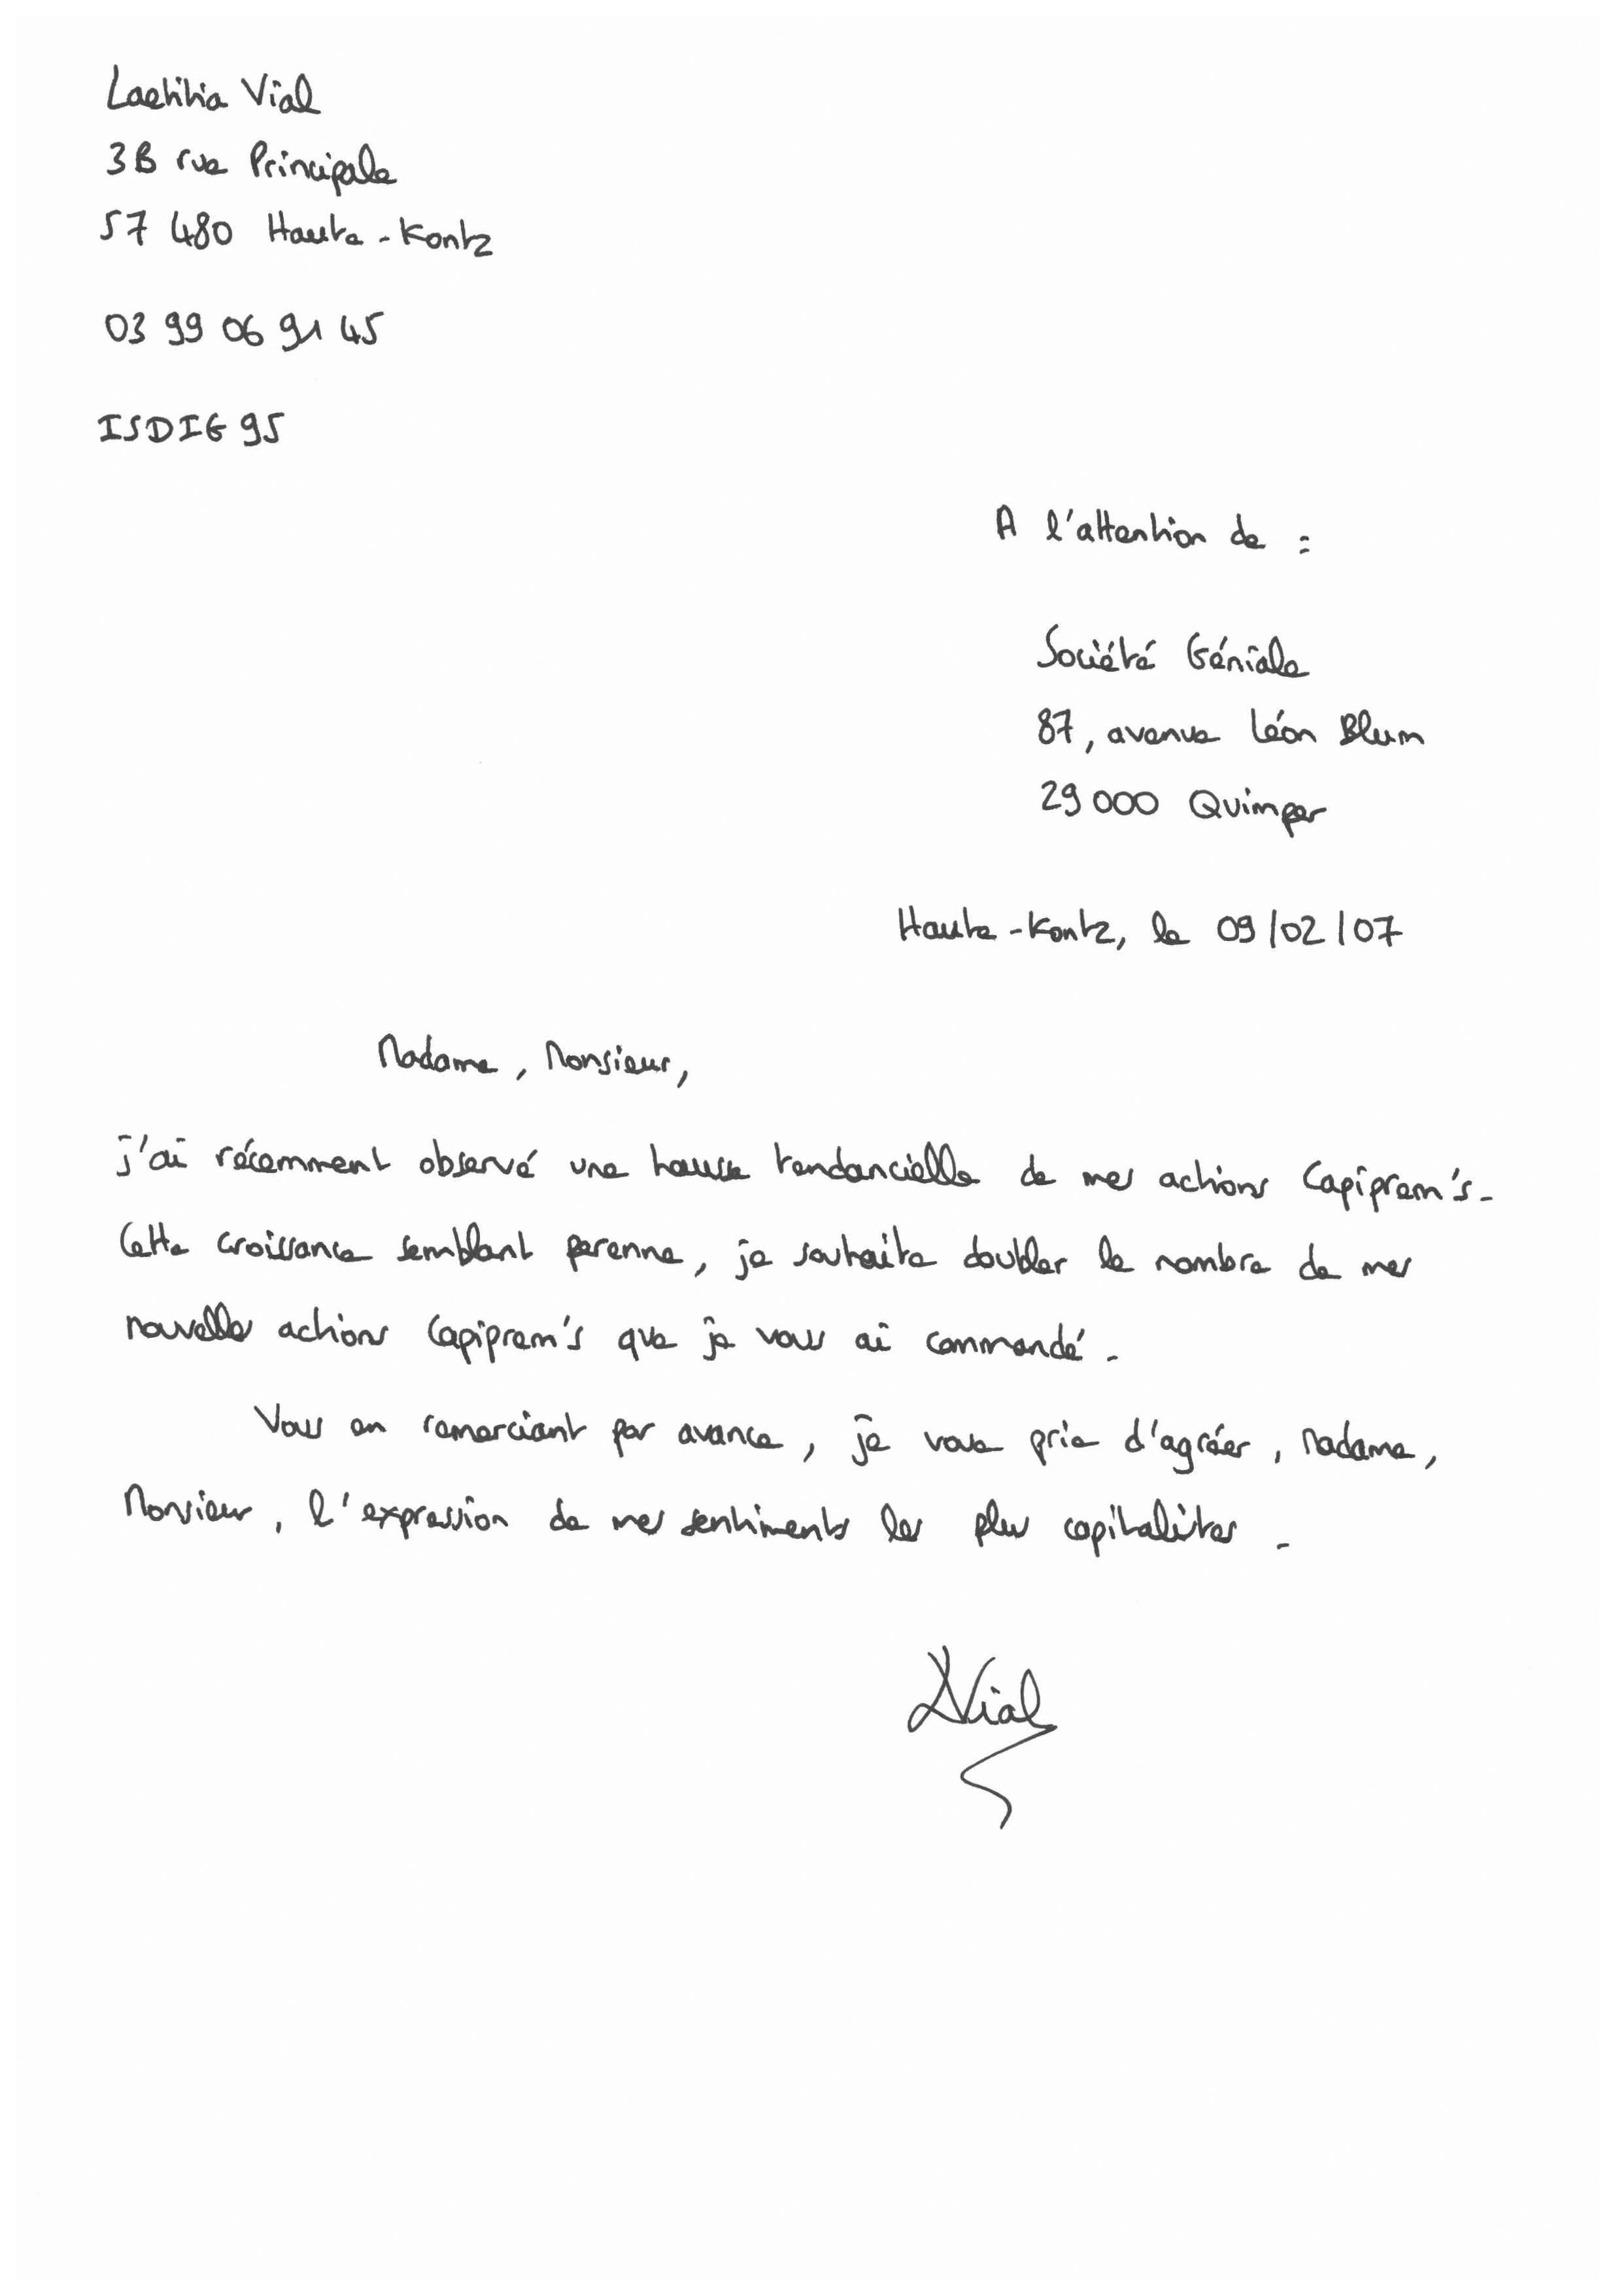 Laetitia Vial
3B rue Principale
57 480 Haute-Kontz
03 99 06 91 45
ISDIG95
A l'attention de :
Société Géniale
87, avenue Léon Blum
29 000 Quimper
Haute-Kontz, le 09/02/07
Madame, Monsieur,
j'ai récemment observé une hausse tendancielle de mes actions Capiprem's.
Cette croissance semblant perenne, je souhaite doubler le nombre de mes
nouvelles actions Capiprem's que je vous ai commandé.
Vous en remerciant par avance, je vous prie d'agréer, Madame,
Monsieur, l'expression de mes sentiments les plus capitalistes.
LVial